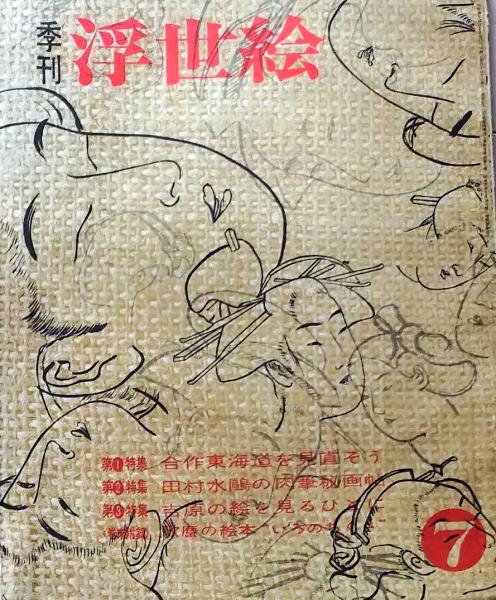 季刊
浮世絵
第1特集 合作東海道を見直そう
第2特集 田村水鷗の肉筆秘画帖
第3特集 吉原の絵を見るひ
歌麿の絵本
7